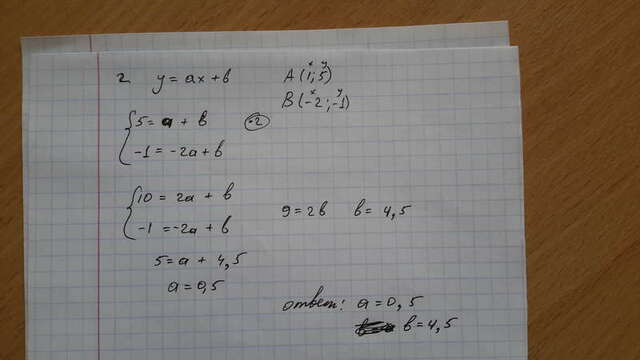 2. y = ax + b
A (1; 5)
x y
B (-2; -1)
x y
5 = a + b
·2
-1 = -2a + b
10 = 2a + b
-1 = -2a + b
9 = 2b b = 4,5
5 = a + 4,5
a = 0,5
ответ: a = 0,5
b = 4,5